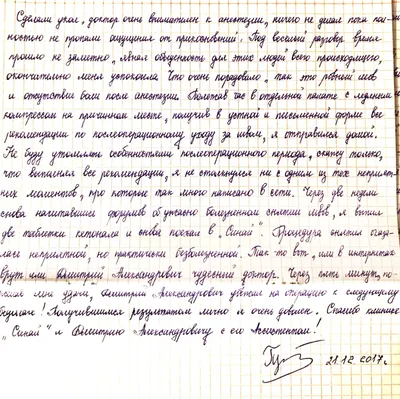 Сделали укол, доктор очень внимателен к анестезии, ничего не делал пока пол-
ностью не пропали ощущения от прикосновений. Под веселый разговор время
прошло не заметно, явная обыденность для этих людей всего происходящего,
окончательно меня успокоила. Что очень порадовало, так это ровный шов
и отсутствие боли после анестезии. Полежав час в отдельной палате с ледяным
компрессом на причинном месте, получив в устной и письменной форме все
рекомендации по послеоперационному уходу за швом, я отправился домой.
Не буду утомлять особенностями послеоперационного периода, скажу только,
что выполняя все рекомендации, я не столкнулся ни с одним из тех неприят-
ных моментов, про которые так много написано в сети. Через две недели
снова начитавшись форумов об ужасно болезненном снятии швов, я выпил
две таблетки кетонала и снова поехал в "Синай". Процедура снятия оказа-
лась неприятной, но практически безболезненной. Так то вот, или в интернетах
врут или Дмитрий Александрович чудесный доктор. Через пять минут, по-
желав мне удачи, Дмитрий Александрович убежал на операцию к следующему
бедолаге! Получившимся результатом лично я очень доволен. Спасибо клинике
"Синай" и Дмитрию Александровичу с его Ассистентом!
21.12.2017г.